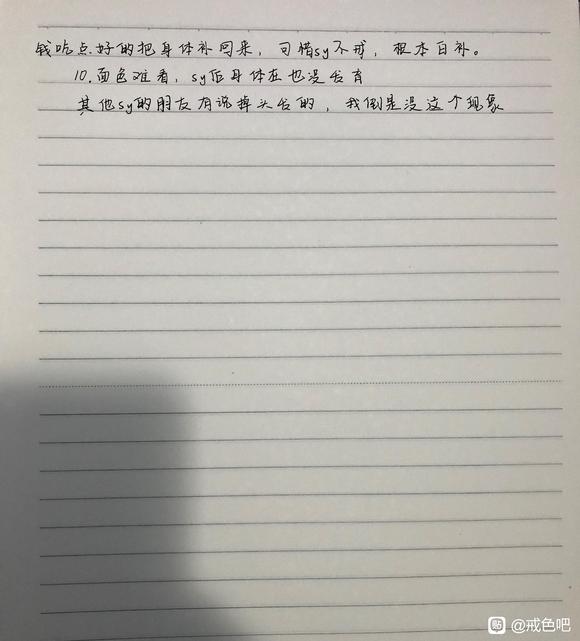 钱吃点好的把身体补回来，可惜sy不戒，根本白补。
10.面色难看，sy后身体在也没发育
其他sy的朋友有说掉头发的，我倒是没这个现象
贴 @戒色吧